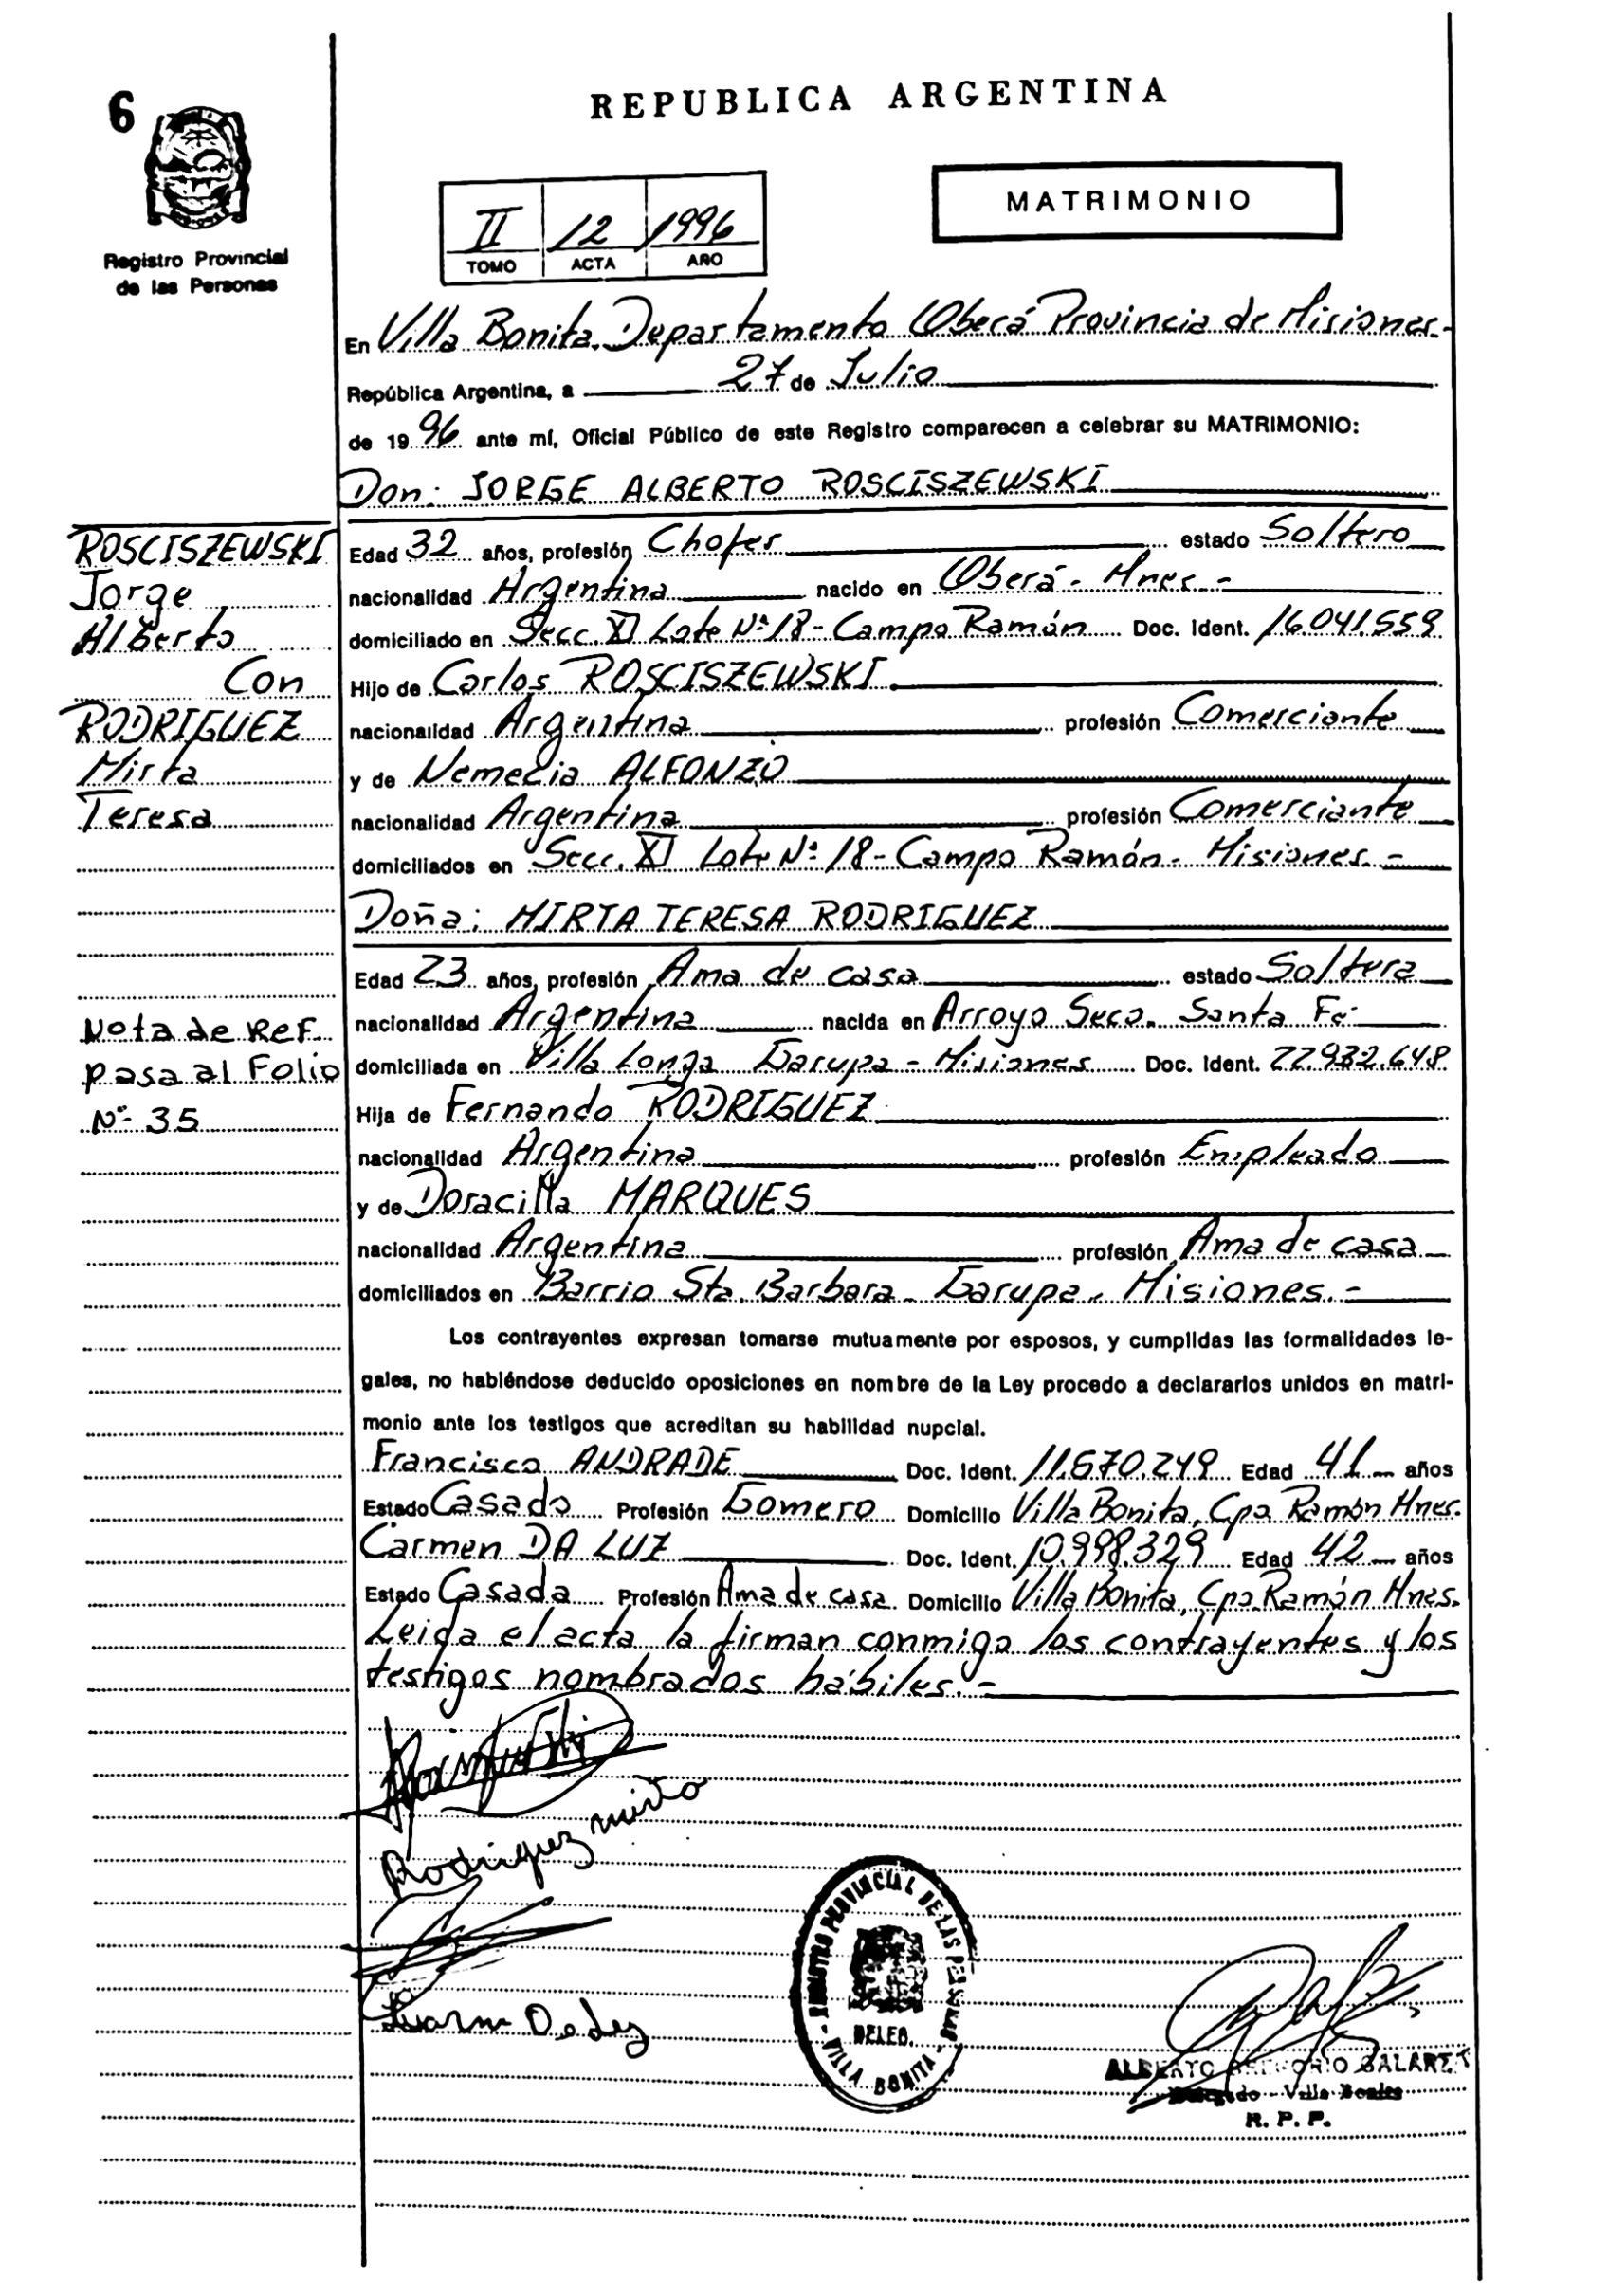 6
REPUBLICA ARGENTINA
MATRIMONIO
II 12 1996
TOMO ACTA AÑO
Registro Provincial
de las Personas
En Villa Bonita. Departamento Oberá Provincia de Misiones.-
República Argentina, a 27 de Julio
de 1996 ante mí, Oficial Público de este Registro comparecen a celebrar su MATRIMONIO:
Don: JORGE ALBERTO ROSCISZEWSKI
ROSCISZEWSKI
Jorge
Alberto
Con
RODRIGUEZ
Mirta
Teresa
Edad 32 años, profesión Chofer estado Soltero
nacionalidad Argentina nacido en Oberá - Mnes.-
domiciliado en Secc. XI Lote Nº 18 - Campo Ramón Doc. Ident. 16.041.559
Hijo de Carlos ROSCISZEWSKI
nacionalidad Argentina profesión Comerciante
y de Nemecia ALFONZO
nacionalidad Argentina profesión Comerciante
domiciliados en Secc. XI Lote Nº 18 - Campo Ramón - Misiones.-
Doña: MIRTA TERESA RODRIGUEZ
Edad 23 años, profesión Ama de casa estado Soltera
nacionalidad Argentina nacida en Arroyo Seco. Santa Fé
domiciliada en Villa Longa Garupa - Misiones Doc. Ident. 22.932.648
Hija de Fernando RODRIGUEZ
nacionalidad Argentina profesión Empleado
y de Doracilla MARQUES
nacionalidad Argentina profesión Ama de casa
domiciliados en Barrio Sta. Barbara - Garupa. Misiones.-
Nota de Ref.
pasa al Folio
Nº 35
Los contrayentes expresan tomarse mutuamente por esposos, y cumplidas las formalidades le-
gales, no habiéndose deducido oposiciones en nombre de la Ley procedo a declararlos unidos en matri-
monio ante los testigos que acreditan su habilidad nupcial.
Francisco ANDRADE Doc. Ident. 11.670.249 Edad 41 años
Estado Casado Profesión Gomero Domicilio Villa Bonita, Cpo Ramón Mnes.
Carmen DA LUZ Doc. Ident. 10.998.329 Edad 42 años
Estado Casada Profesión Ama de casa Domicilio Villa Bonita, Cpo. Ramón Mnes.
Leida el acta la firman conmigo los contrayentes y los
testigos nombrados hábiles.-
Rodriguez mirta
REGISTRO PROVINCIAL DE LAS PERSONAS
DELEG.
- VILLA BONITA -
ALBERTO
Delegado - Villa Bonita
R. P. P.